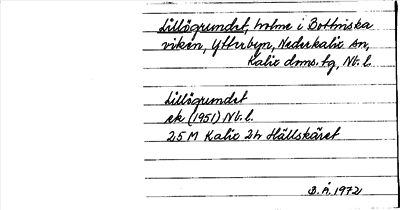 Lillögrundet, holme i Bottniska
viken, Ytterbyn, Nederkalix sn,
Kalix doms. tg, Nb. l.
Lillögrundet
ek (1951) Nb. l.
25 M Kalix 2h Hällskäret
B. Å. 1972